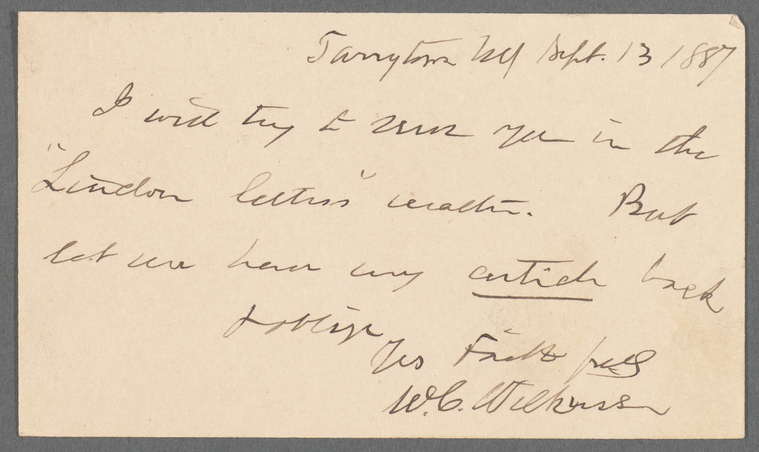 Tarrytown NY Sept. 13 1887
I will try to serve you in the
"London letters" matter. But
let me have my article back
& oblige
Yrs Faithfully
W.C. Wilkinson